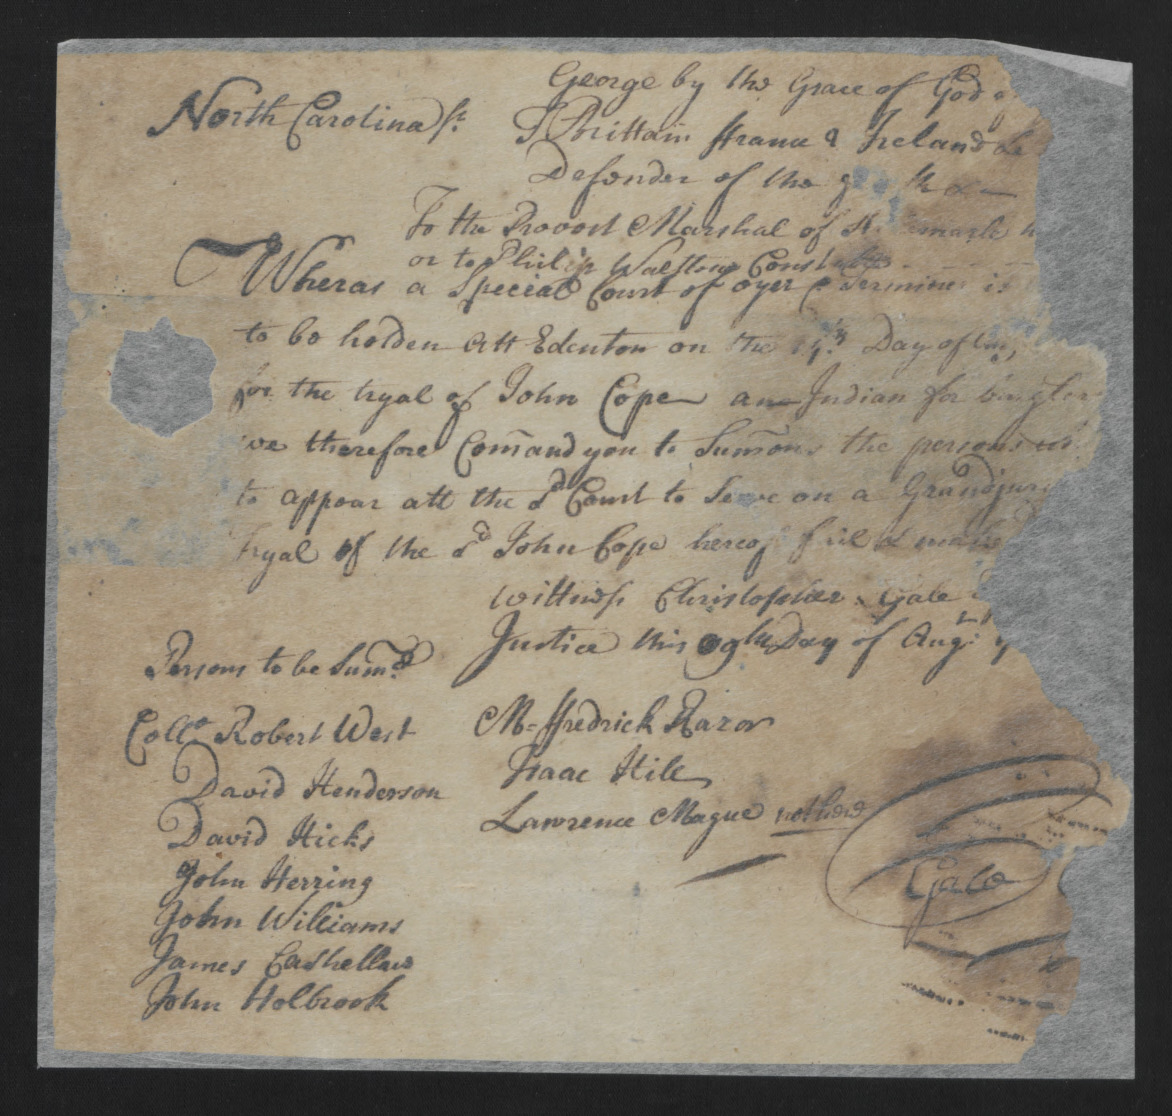 North Carolina ss.
George by the Grace of God o
G Brittain ffrance & Ireland
Defender of the
To the Provost Marshal of
or to Philip Walston Const
Wheras a Special Court of oyer & Terminer is
to be holden att Edenton on the Day of
for the tryal of John Cope an Indian for
we therefore Com̄and you to Sum̄ons the persons
to appear att the sd Court to Serve on a Grandjury
tryal of the sd John Cope hereof fail
Wittness Christopher Gale
Justice this Day of Augt
Persons to be Sumd
Collo Robert West
David Henderson
David Hicks
John Herring
John Williams
James Castellaw
John Holbrook
Mr ffredrick Razor
Isaac Hill
Lawrence Mague not here
CGale